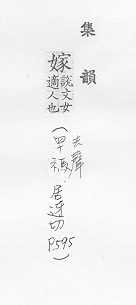 集韻
嫁說文女適人也(去聲四十禡.居迓切P595)